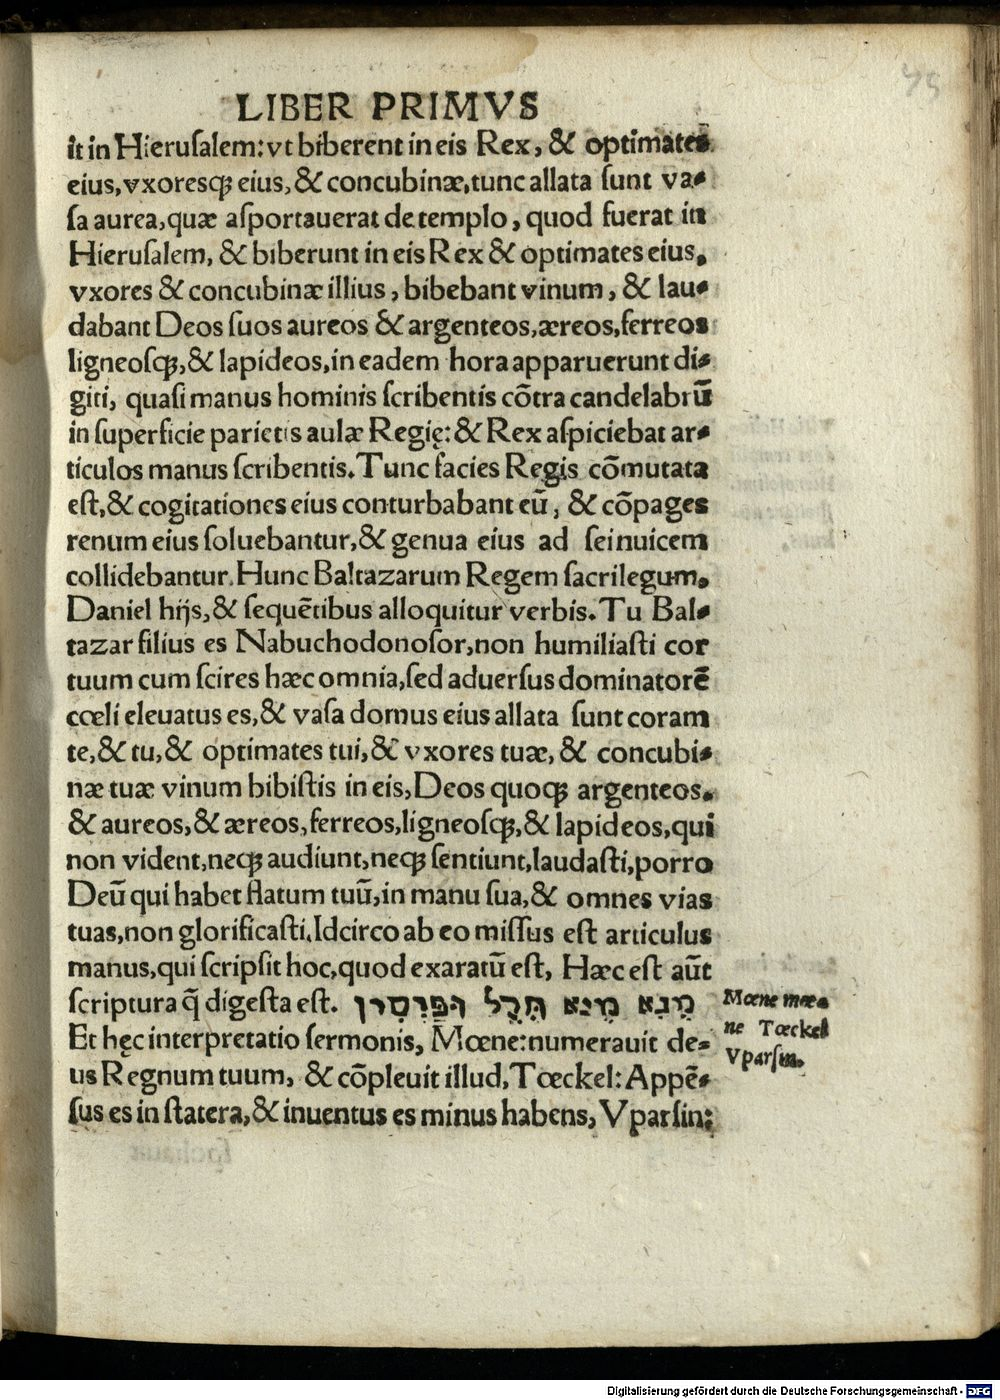 45
LIBER PRIMVS
it in Hieruſalem: vt biberent in eis Rex, & optimates
eius, vxoresqꝫ eius, & concubinæ, tunc allata ſunt va-
ſa aurea, quæ aſportauerat de templo, quod fuerat in
Hieruſalem, & biberunt in eis Rex & optimates eius,
vxores & concubinæ illius, bibebant vinum, & lau-
dabant Deos ſuos aureos & argenteos, æreos, ferreos
ligneoſqꝫ, & lapideos, in eadem hora apparuerunt di-
giti, quaſi manus hominis ſcribentis cõtra candelabrũ
in ſuperficie parietis aulæ Regię: & Rex aſpiciebat ar-
ticulos manus ſcribentis. Tunc facies Regis cõmutata
eſt, & cogitationes eius conturbabant eũ, & cõpages
renum eius ſoluebantur, & genua eius ad ſeinuicem
collidebantur. Hunc Baltazarum Regem ſacrilegum,
Daniel hijs, & ſequẽtibus alloquitur verbis. Tu Bal-
tazar filius es Nabuchodonoſor, non humiliaſti cor
tuum cum ſcires hæc omnia, ſed aduerſus dominatorẽ
cœli eleuatus es, & vaſa domus eius allata ſunt coram
te, & tu, & optimates tui, & vxores tuæ, & concubi-
næ tuæ vinum bibiſtis in eis, Deos quoqꝫ argenteos.
& aureos, & æreos, ferreos, ligneoſqꝫ, & lapideos, qui
non vident, neqꝫ audiunt, neqꝫ ſentiunt, laudaſti, porro
Deũ qui habet flatum tuũ, in manu ſua, & omnes vias
tuas, non glorificaſti. Idcirco ab eo miſſus eſt articulus
manus, qui ſcripſit hoc, quod exaratũ eſt, Hæc eſt aũt
ſcriptura q̃ digeſta eſt. מֶנֵא מֶנֵא תֶּקֶל וּפַּרְסִין
Et hęc interpretatio ſermonis, Mœne: numerauit de-
us Regnum tuum, & cõpleuit illud, Tœckel: Appẽ-
ſus es in ſtatera, & inuentus es minus habens, Vparſin:
Mœne mœ-
ne Tœckel
Vparſin.
Digitalisierung gefördert durch die Deutsche Forschungsgemeinschaft - DFG